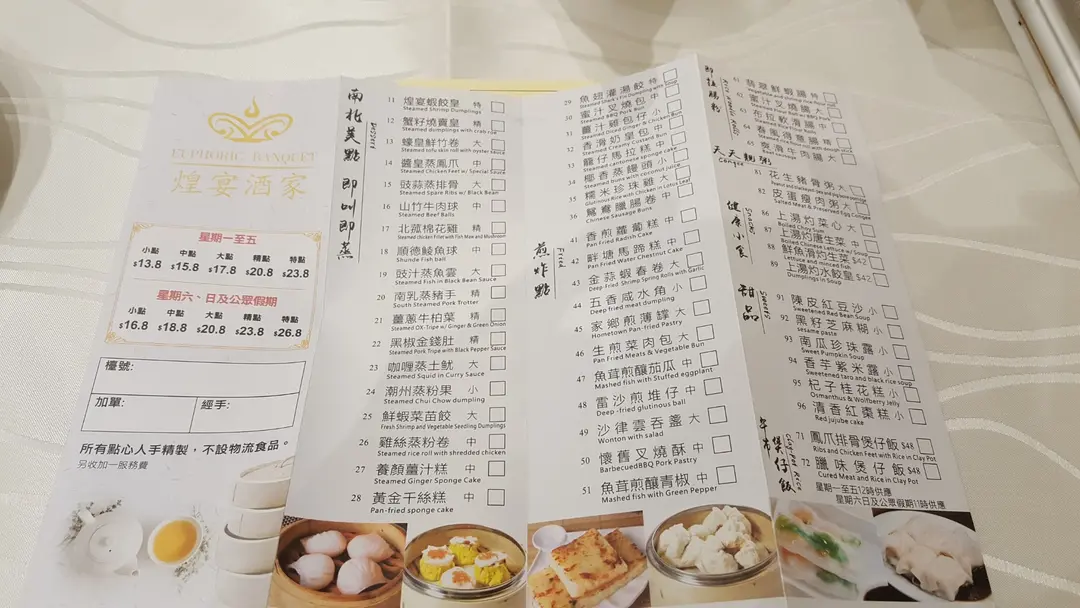 EUPHORIC BANQUET
煌宴酒家
星期一至五
小點 中點 大點 精點 特點
$13.8 $15.8 $17.8 $20.8 $23.8
星期六、日及公眾假期
小點 中點 大點 精點 特點
$16.8 $18.8 $20.8 $23.8 $26.8
檯號:
加單: 經手:
所有點心人手精製，不設物流食品。
另收加一服務費
南北美點 即叫即蒸
11 煌宴蝦餃皇 特
Steamed Shrimp Dumplings
12 蟹籽燒賣皇 精
Steamed dumplings with crab roe
13 蠔皇鮮竹卷 大
Steamed tofu skin roll with oyster sauce
14 醬皇蒸鳳爪 中
Steamed Chicken Feet w/ Special Sauce
15 豉蒜蒸排骨 大
Steamed Spare Ribs w/ Black Bean
16 山竹牛肉球 中
Steamed Beef Balls
17 北菰棉花雞 精
Steamed chicken Fillet with Fish Maw and Mushroom
18 順德鯪魚球 中
Shunde Fish ball
19 豉汁蒸魚雲 大
Steamed Fish in Black Bean Sauce
20 南乳蒸豬手 精
South Steamed Pork Trotter
21 薑蔥牛柏葉 精
Steamed OX-Tripe w/ Ginger & Green Onion
22 黑椒金錢肚 精
Steamed Pork Tripe with Black Pepper Sauce
23 咖喱蒸土魷 大
Steamed Squid in Curry Sauce
24 潮州蒸粉果 小
Steamed Chui Chow dumpling
25 鮮蝦菜苗餃 大
Fresh Shrimp and Vegetable Seedling Dumplings
26 雞絲蒸粉卷 中
Steamed rice roll with shredded chicken
27 養顏薑汁糕 中
Steamed Ginger Sponge Cake
28 黃金千絲糕 中
Pan-fried sponge cake
29 魚翅灌湯餃 特
30 蜜汁叉燒包 中
Steamed BBQ Pork Bun
31 薑汁雞包仔 小
Steamed Diced Ginger & Chicken Bun
32 香滑奶皇包 中
Steamed Creamy Custard Bun
33 籠仔馬拉糕 中
Steamed cantonese sponge cake
34 椰香蒸饅頭 小
Steamed buns with coconut juice
35 糯米珍珠雞 大
Glutinous Rice with Chicken in Lotus Leaf
36 鴛鴦臘腸卷 中
Chinese Sausage Buns
煎炸點
Fried
41 香煎蘿蔔糕 中
Pan Fried Radish Cake
42 畔塘馬蹄糕 中
Pan Fried Water Chestnut Cake
43 金蒜蝦春卷 大
Deep-Fried Shrimp Spring Rolls with Garlic
44 五香咸水角 小
Deep fried meat dumpling
45 家鄉煎薄罉 大
Hometown Pan-fried Pastry
46 生煎菜肉包 大
Pan Fried Meats & Vegetable Bun
47 魚茸煎釀茄瓜 中
Mashed fish with Stuffed eggplant
48 雷沙煎堆仔 中
Deep -fried glutinous ball
49 沙律雲吞盞 大
Wonton with salad
50 懷舊叉燒酥 中
BarbecuedBBQ Pork Pastry
51 魚茸煎釀青椒 中
Mashed fish with Green Pepper
即拉腸粉
61 翡翠鮮蝦腸 特
62 蜜汁叉燒腸 大
63 布拉軟滑腸 中
64 春風得意腸
65 齋滑牛肉腸 大
天天靚粥
Congee
81 花生豬骨粥 大
82 皮蛋瘦肉粥 小
Salted Meat & Preserved Egg Congee
健康小食
Snacks
86 上湯灼菜心 大
Boiled Choy Sum
87 上湯灼唐生菜 中
Boiled Chinese Lettuce w/ Soup
88 鮮魚滑灼生菜 $42
Lettuce and mashed fish
89 上湯灼水餃皇 $42
Dumplings in Soup
甜品
Sweets
91 陳皮紅豆沙 小
Sweetened Red Bean Soup
92 黑籽芝麻糊 小
sesame paste
93 南瓜珍珠露 小
Sweet Pumpkin Soup
94 香芋紫米露 小
Sweetened taro and black rice soup
95 杞子桂花糕 小
Osmanthus & Wolfberry Jelly
96 清香紅棗糕 小
Red jujube cake
午市 煲仔飯
Claypot Rice
71 鳳爪排骨煲仔飯 $48
Ribs and Chicken Feet with Rice in Clay Pot
72 臘味煲仔飯 $48
Cured Meat and Rice in Clay Pot
星期一至五12時供應
星期六日及公眾假期11時供應